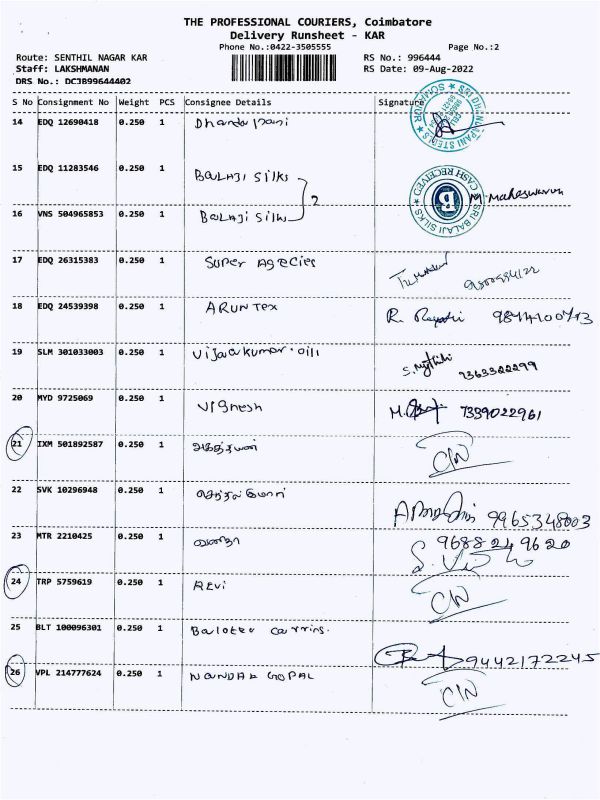 THE PROFESSIONAL COURIERS, Coimbatore
Delivery Runsheet - KAR
Phone No.:0422-3505555
Page No.:2
Route: SENTHIL NAGAR KAR
RS No.: 996444
Staff: LAKSHMANAN
RS Date: 09-Aug-2022
DRS No.: DCJB99644402
S No Consignment No Weight PCS Consignee Details Signature
14 EDQ 12690418 0.250 1 Dhandapani
SRI DHANDAPANI STEELS
15 EDQ 11283546 0.250 1 BALAJI Silks
SRI BALAJI SILKS ★ CASH RECEIVED ★
M. Maheswaran
16 VNS 504965853 0.250 1 BALAJI Silks } 2
17 EDQ 26315383 0.250 1 Super Agecies
18 EDQ 24539398 0.250 1 ARUN Tex R.
19 SLM 301033003 0.250 1 Vijayakumar. oill
S. 9363322299
20 MYD 9725069 0.250 1 Vignesh M. 7339022961
21 IXM 501892587 0.250 1
22 SVK 10296948 0.250 1
9965348003
23 MTR 2210425 0.250 1 வனஜா 9688249620
24 TRP 5759619 0.250 1 Revi
25 BLT 100096301 0.250 1
9442172245
26 VPL 214777624 0.250 1 NANDHA GOPAL